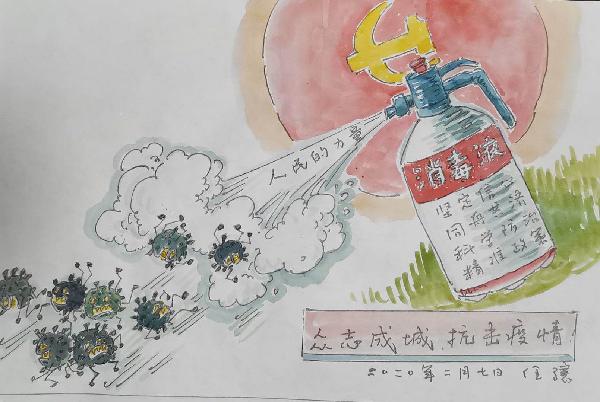 人民的力量
消毒液
坚定信心
同舟共济
科学防治
精准政策
众志成城、抗击疫情!
二〇二〇年二月七日